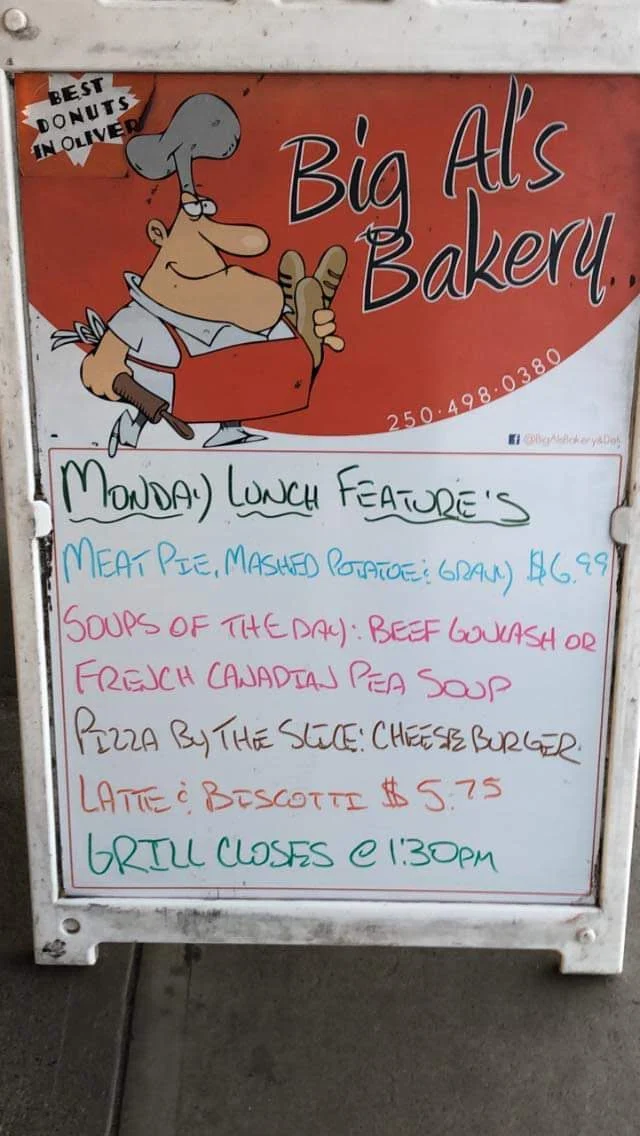 BEST
DONUTS
IN OLIVER
Big Al's
Bakery
250·498·0380
MONDAY LUNCH FEATURE'S
MEAT PIE, MASHED POTATOE & GRAVY $6.99
SOUPS OF THE DAY: BEEF GOULASH OR
FRENCH CANADIAN PEA SOUP
PIZZA BY THE SLICE: CHEESE BURGER
LATTE & BISCOTTI $5.75
GRILL CLOSES @ 1:30PM